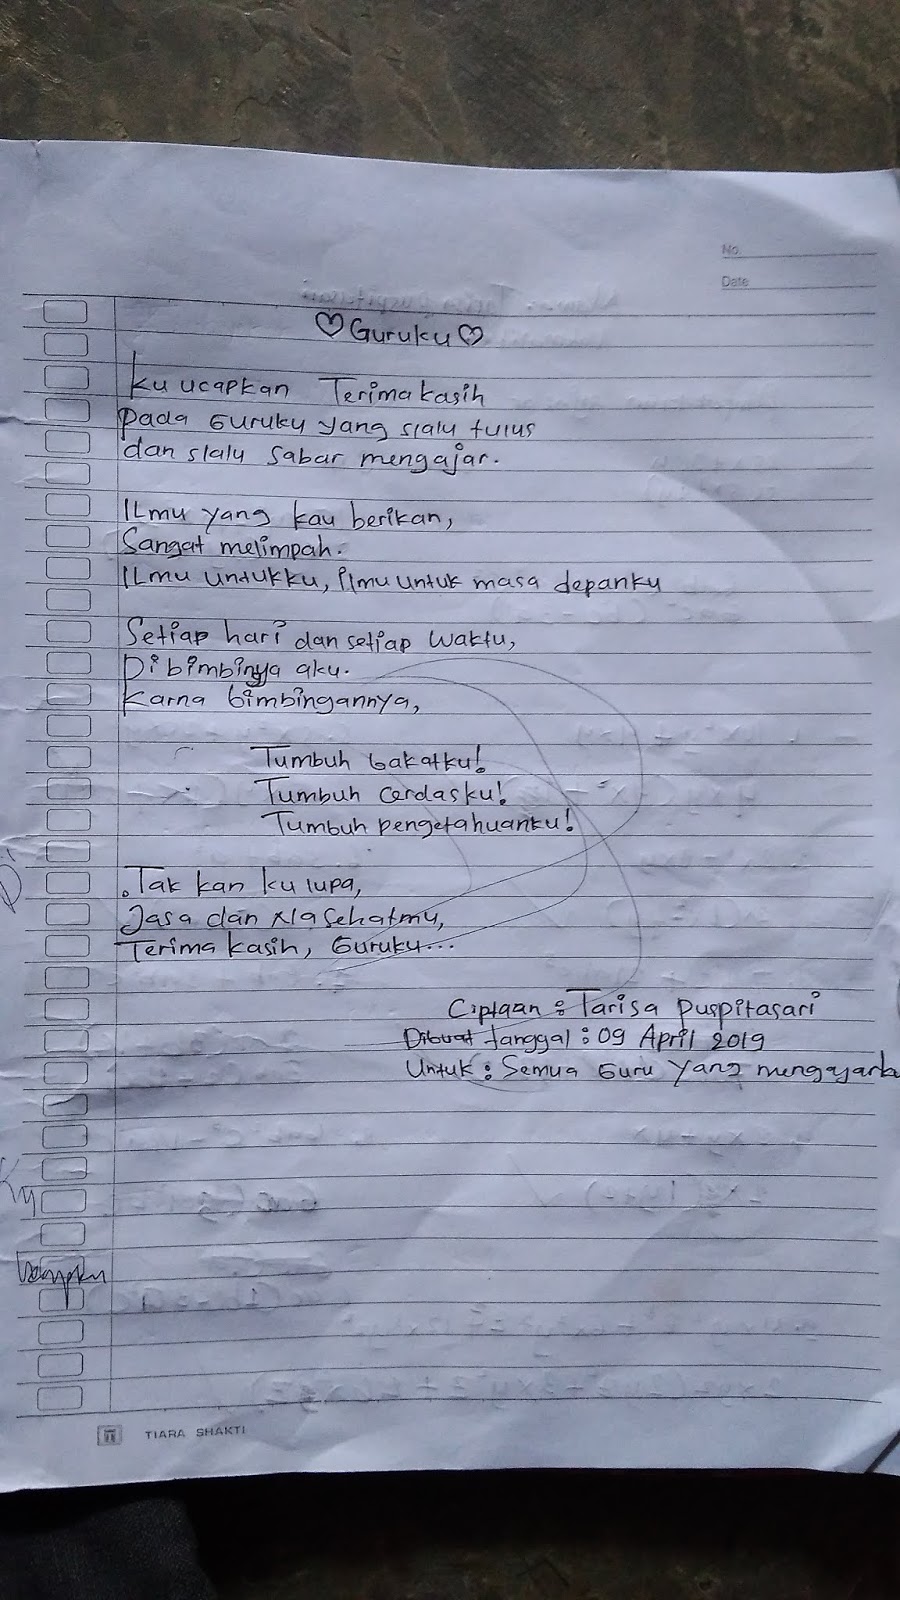 No.
Date
♡Guruku♡
ku ucapkan Terimakasih
pada Guruku yang slalu tulus
dan slalu sabar mengajar.
ILmu yang kau berikan,
Sangat melimpah.
ILmu untukku, ilmu untuk masa depanku
Setiap hari dan setiap waktu,
Di bimbingya aku.
Karna bimbingannya,
Tumbuh bakatku!
Tumbuh cerdasku!
Tumbuh pengetahuanku!
.Tak kan ku lupa,
Jasa dan Nasehatmu,
Terima kasih, Guruku...
Ciptaan : Tarisa Puspitasari
Dibuat tanggal : 09 April 2019
Untuk : Semua Guru yang mengajark
TIARA SHAKTI